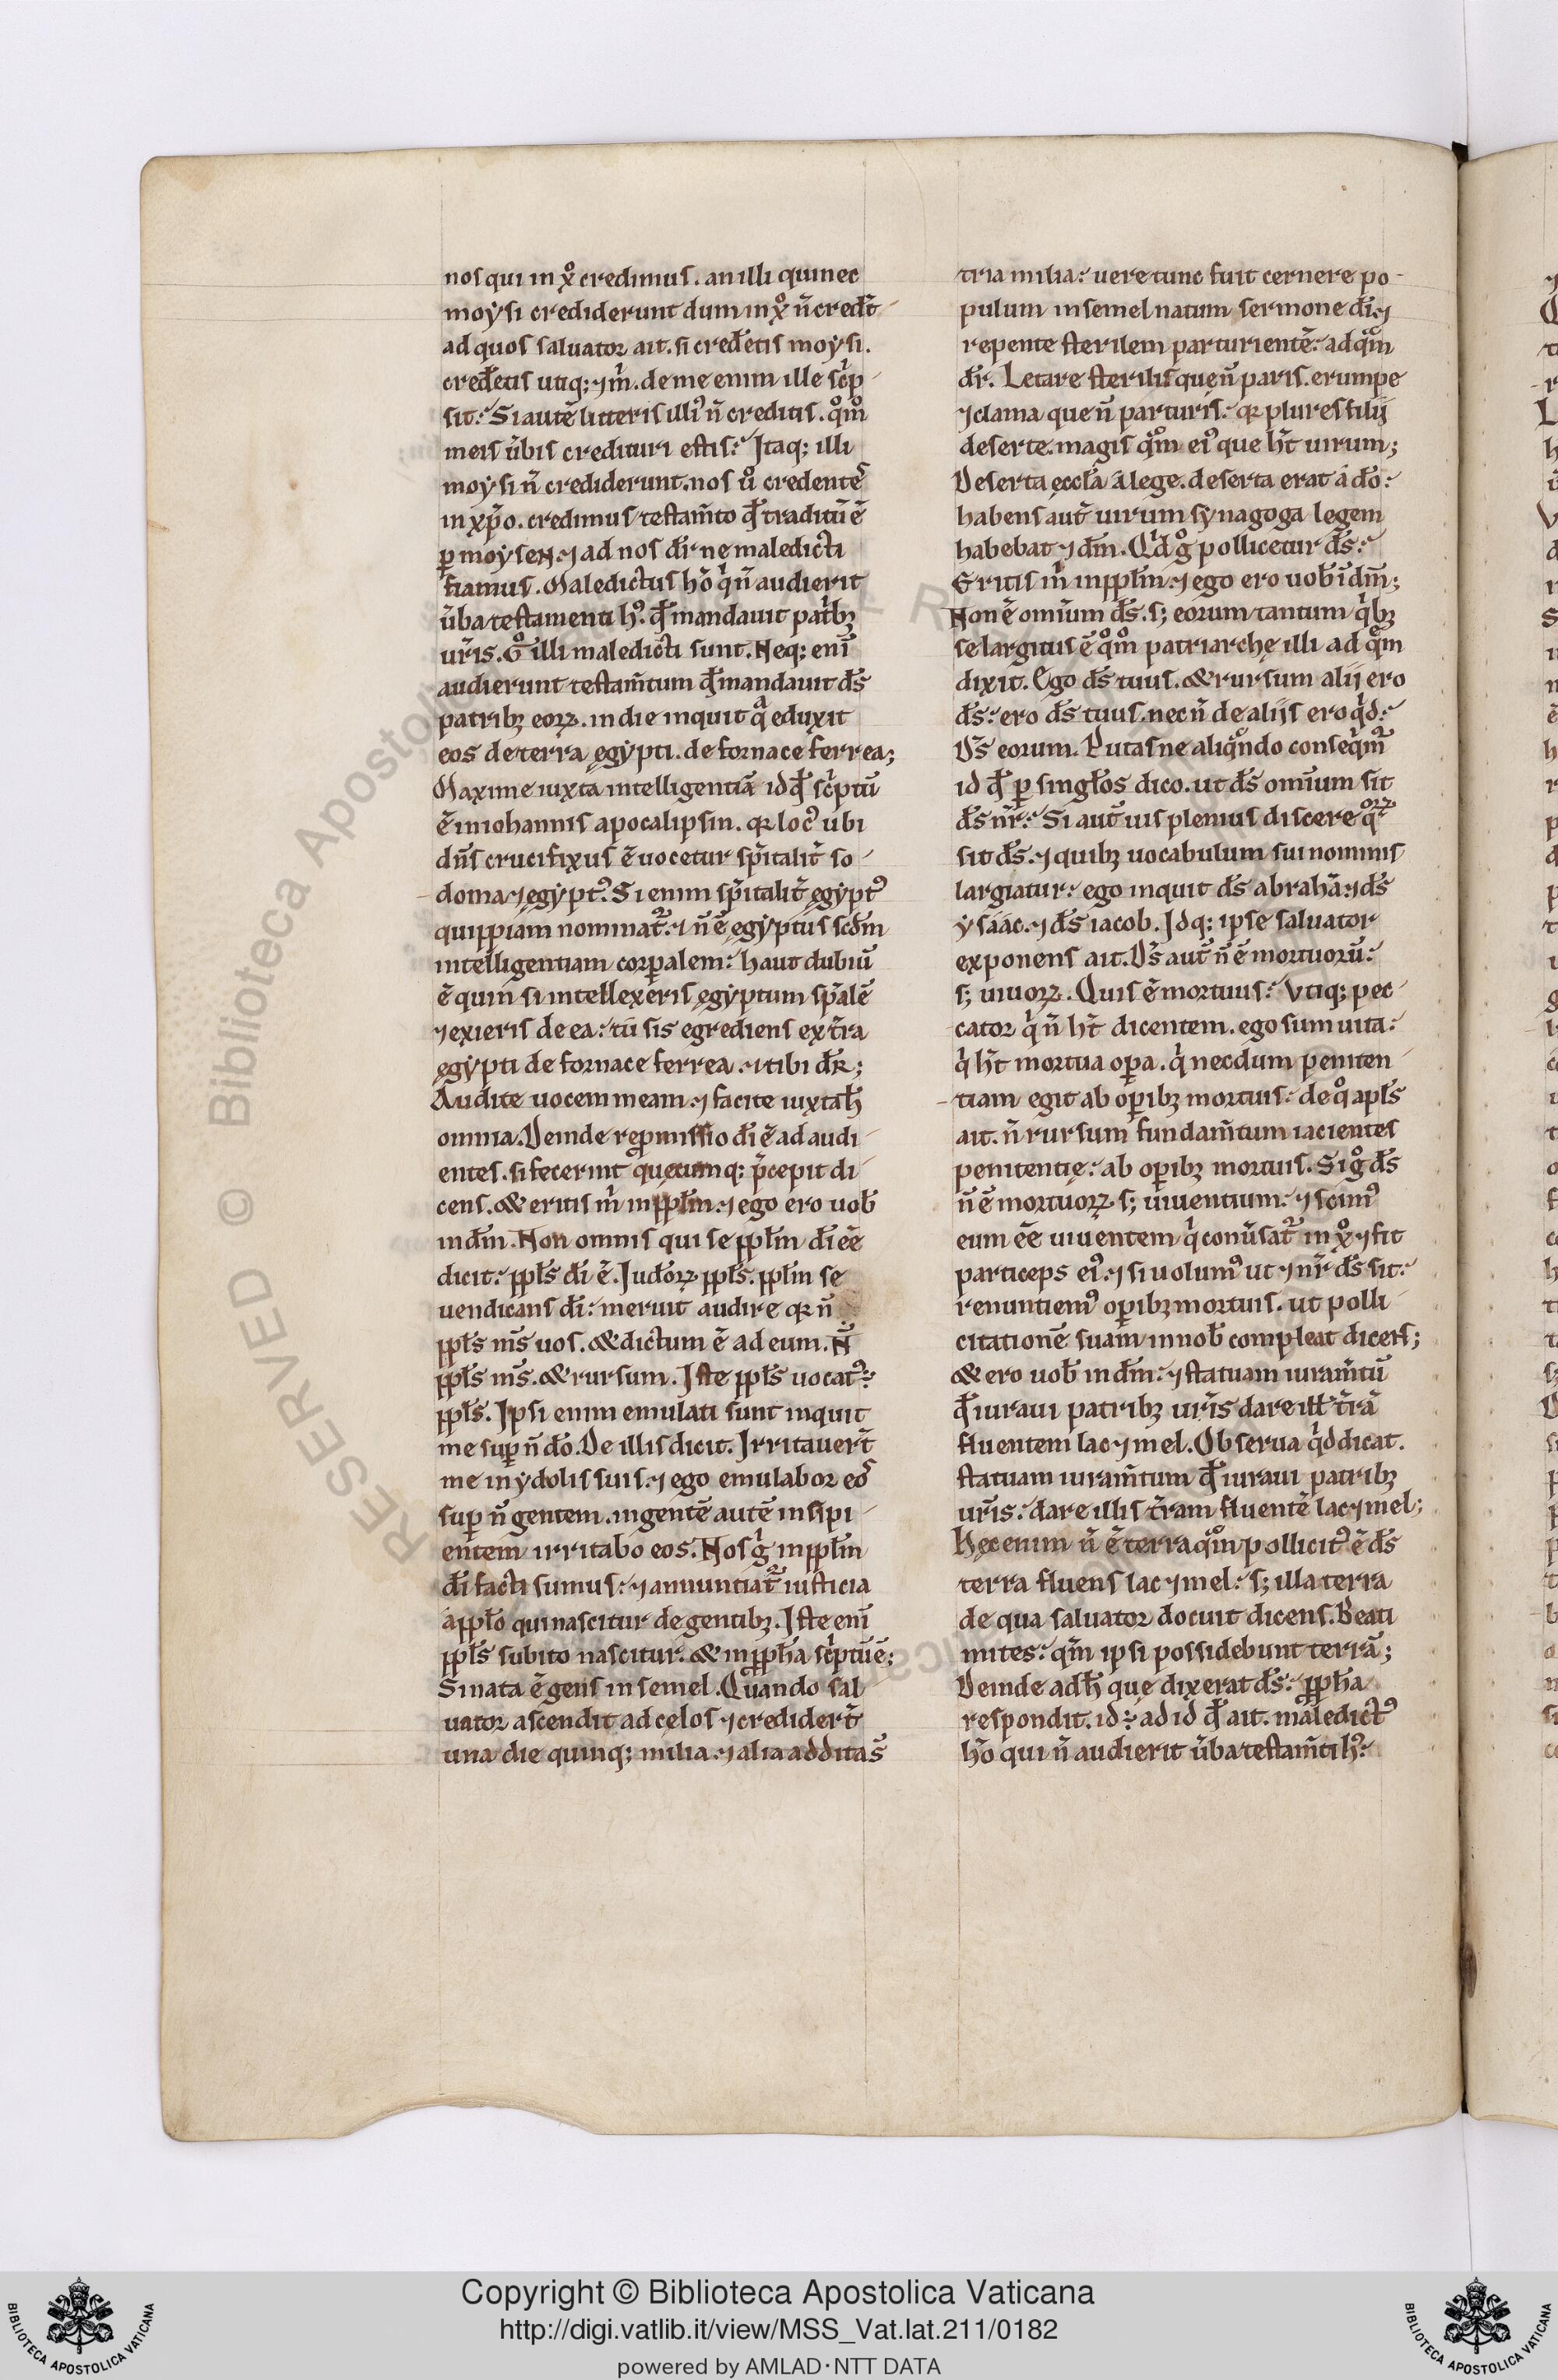 nos qui in xͦ credimus. an illi qui nec
moẏsi crediderunt dum in xͦ n̄ credt̄
ad quos saluator ait. si cred̄etis moẏsi.
cred̄etis utiq; ⁊ m̄. de me enim ille sc̄p
sit. Si autē litteris illiꝰ n̄ creditis. qͦmͦ
meis ūbis credituri estis. Itaq; illi
moẏsi n̄ crediderunt. nos uͦ credentes
in xp̄o. credimus testam̄to qd̄ traditū ē
ꝑ moẏsen. ⁊ ad nos dr̄ ne maledicti
fiamus. Maledictus hō qͥ n̄ audierit
ūba testamenti hꝰ. qd̄ mandauit patͥbꝫ
ur̄is. Gͦ illi maledicti sunt. Neq; enī
audierunt testam̄tum qd̄ mandauit ds̄
patribꝫ eoꝝ. in die inquit qᵃ eduxit
eos de terra ęgẏpti. de fornace ferrea;
Maxime iuxta intelligentiā id qd̄ scͥptū
ē in iohannis apocalipsin. qꝛ locꝰ ubi
dn̄s crucifixus ē uocetur sp̄italit̄ so
doma ⁊ ęgẏptꝰ. Si enim sp̄italit̄ ęgẏptꝰ
quippiam nominat᷑. ⁊ n̄ ē ęgẏptus scd̄m
intelligentiam corꝑalem. haut dubiū
ē quin si intellexeris ęgẏptum sp̄alē
⁊ exieris de ea. tu sis egrediens ex t̄ra
ęgẏpti de fornace ferrea. ⁊ tibi dr̄;
Audite uocem meam. ⁊ facite iuxta h̄
omnia. Deinde reꝓmissio dī ē ad audi
entes. si fecerint quęcumq; p̄cepit di
cens. & eritis m̄ in ppl̄m. ⁊ ego ero uob̄
in dm̄. Non omnis qui se ppl̄m dī eē
dicit. ppl̄s dī ē. Iud̄oꝝ ppl̄s. ppl̄m se
uendicans dī. meruit audire qꝛ n̄
ppl̄s ms̄ uos. & dictum ē ad eum. N̄
ppl̄s ms̄. & rursum. Iste ppl̄s uocatꝰ.
ppl̄s. Ipsi enim emulati sunt inquit
me suꝑ n̄ dō. De illis dicit. Irritauert̄
me in ẏdolis suis. ⁊ ego emulabor eos
suꝑ n̄ gentem. in gentē autē insipi
entem irritabo eos. Nos gͥ in ppl̄m
dī facti sumus. ⁊ annuntiat᷑ iusticia
a ppl̄o qui nascitur de gentibꝫ. Iste enī
ppl̄s subito nascitur. & in pph̄a scͥptū ē;
Si nata ē gens in semel. Quando sal
uator ascendit ad celos ⁊ credidert̄
una die quinq; milia. ⁊ alia addita s̄
tria milia. uere tunc fuit cernere po
pulum in semel natum sermone dī. ⁊
repente sterilem parturientē. ad qͣm
dr̄. Letare sterilis que n̄ paris. erumpe
⁊ clama que n̄ parturis. qꝛ plures filij
deserte. magis qͣm eiꝰ que ht̄ uirum;
Deserta eccl̄a a lege. deserta erat a dō.
habens aut̄ uirum synagoga legem
habebat ⁊ dm̄. Qͥd gͦ pollicetur ds̄.
Eritis m̄ in ppl̄m. ⁊ ego ero uob̄ ī dm̄;
Non ē omnium ds̄. s; eorum tantum qͥbꝫ
se largitus ē qͦmͦ patriarchę illi ad qͣm
dixit. Ego ds̄ tuus. & rursum alij ero
ds̄. ero ds̄ tuus. nec n̄ de alijs ero qͥd.
Ds̄ eorum. Putasne aliqͣndo conseqͥm᷑
id qd̄ ꝑ singl̄os dico. ut ds̄ omnium sit
ds̄ nr̄. Si aut̄ uis plenius discere qͦꝝ
sit ds̄. ⁊ quibꝫ uocabulum sui nominis
largiatur. ego inquit ds̄ abrahā. ⁊ ds̄
ẏsaac. ⁊ ds̄ iacob. Idq; ipse saluator
exponens ait. Ds̄ aut̄ n̄ ē mortuorū.
s; uiuoꝝ. Quis ē mortuus. Vtiq; pec
cator qͥ n̄ ht̄ dicentem. ego sum uita.
qͥ ht̄ mortua oꝑa. qͥ necdum peniten
tiam egit ab oꝑibꝫ mortuis. de qͦ apl̄s
ait. n̄ rursum fundam̄tum iacientes
penitentię. ab oꝑibꝫ mortuis. Si gͦ ds̄
n̄ ē mortuoꝝ s; uiuentium. ⁊ scimꝰ
eum eē uiuentem qͥ conūsat᷑ in xͦ. ⁊ fit
particeps eiꝰ. ⁊ si uolumꝰ ut ⁊ nr̄ ds̄ sit.
renuntiemꝰ oꝑibꝫ mortuis. ut polli
citationē suam in nob̄ compleat dicens;
& ero uob̄ in dm̄. ⁊ statuam iuram̄tū
qd̄ iuraui patribꝫ ur̄is dare ill̄ t̄rā
fluentem lac ⁊ mel. Obserua qͥd dicat.
statuam iuram̄tum qd̄ iuraui patribꝫ
ur̄is. dare illis t̄ram fluentē lac ⁊ mel;
Hęc enim n̄ ē terra qͣm pollicitꝰ ē ds̄
terra fluens lac ⁊ mel. s; illa terra
de qua saluator docuit dicens. Beati
mites. qm̄ ipsi possidebunt terrā;
Deinde adh̄ que dixerat ds̄. pph̄a
respondit. id ÷ ad id qd̄ ait. maledictꝰ
hō qui n̄ audierit ūba testam̄ti hꝰ.
RESERVED © Biblioteca Apostolica
Copyright © Biblioteca Apostolica Vaticana
http://digi.vatlib.it/view/MSS_Vat.lat.211/0182
powered by AMLAD·NTT DATA
BIBLIOTECA APOSTOLICA VATICANA
BIBLIOTECA APOSTOLICA VATICANA